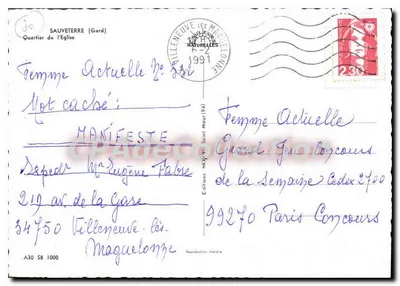 SAUVETERRE (Gard)
Quartier de l'Eglise
VILLENEUVE LES MAGUELONNE
1991
2,30
Femme Actuelle N°
Mot caché:
MANIFESTE
Expedr Mr Eugène Fabre
219 av. de la Gare
34750 Villeneuve-lès-
Maguelonne
A30 58 1000
Reproduction interdite
Femme Actuelle
Grand Jeu Concours
de la Semaine Cedex 2700
99270 Paris Concours